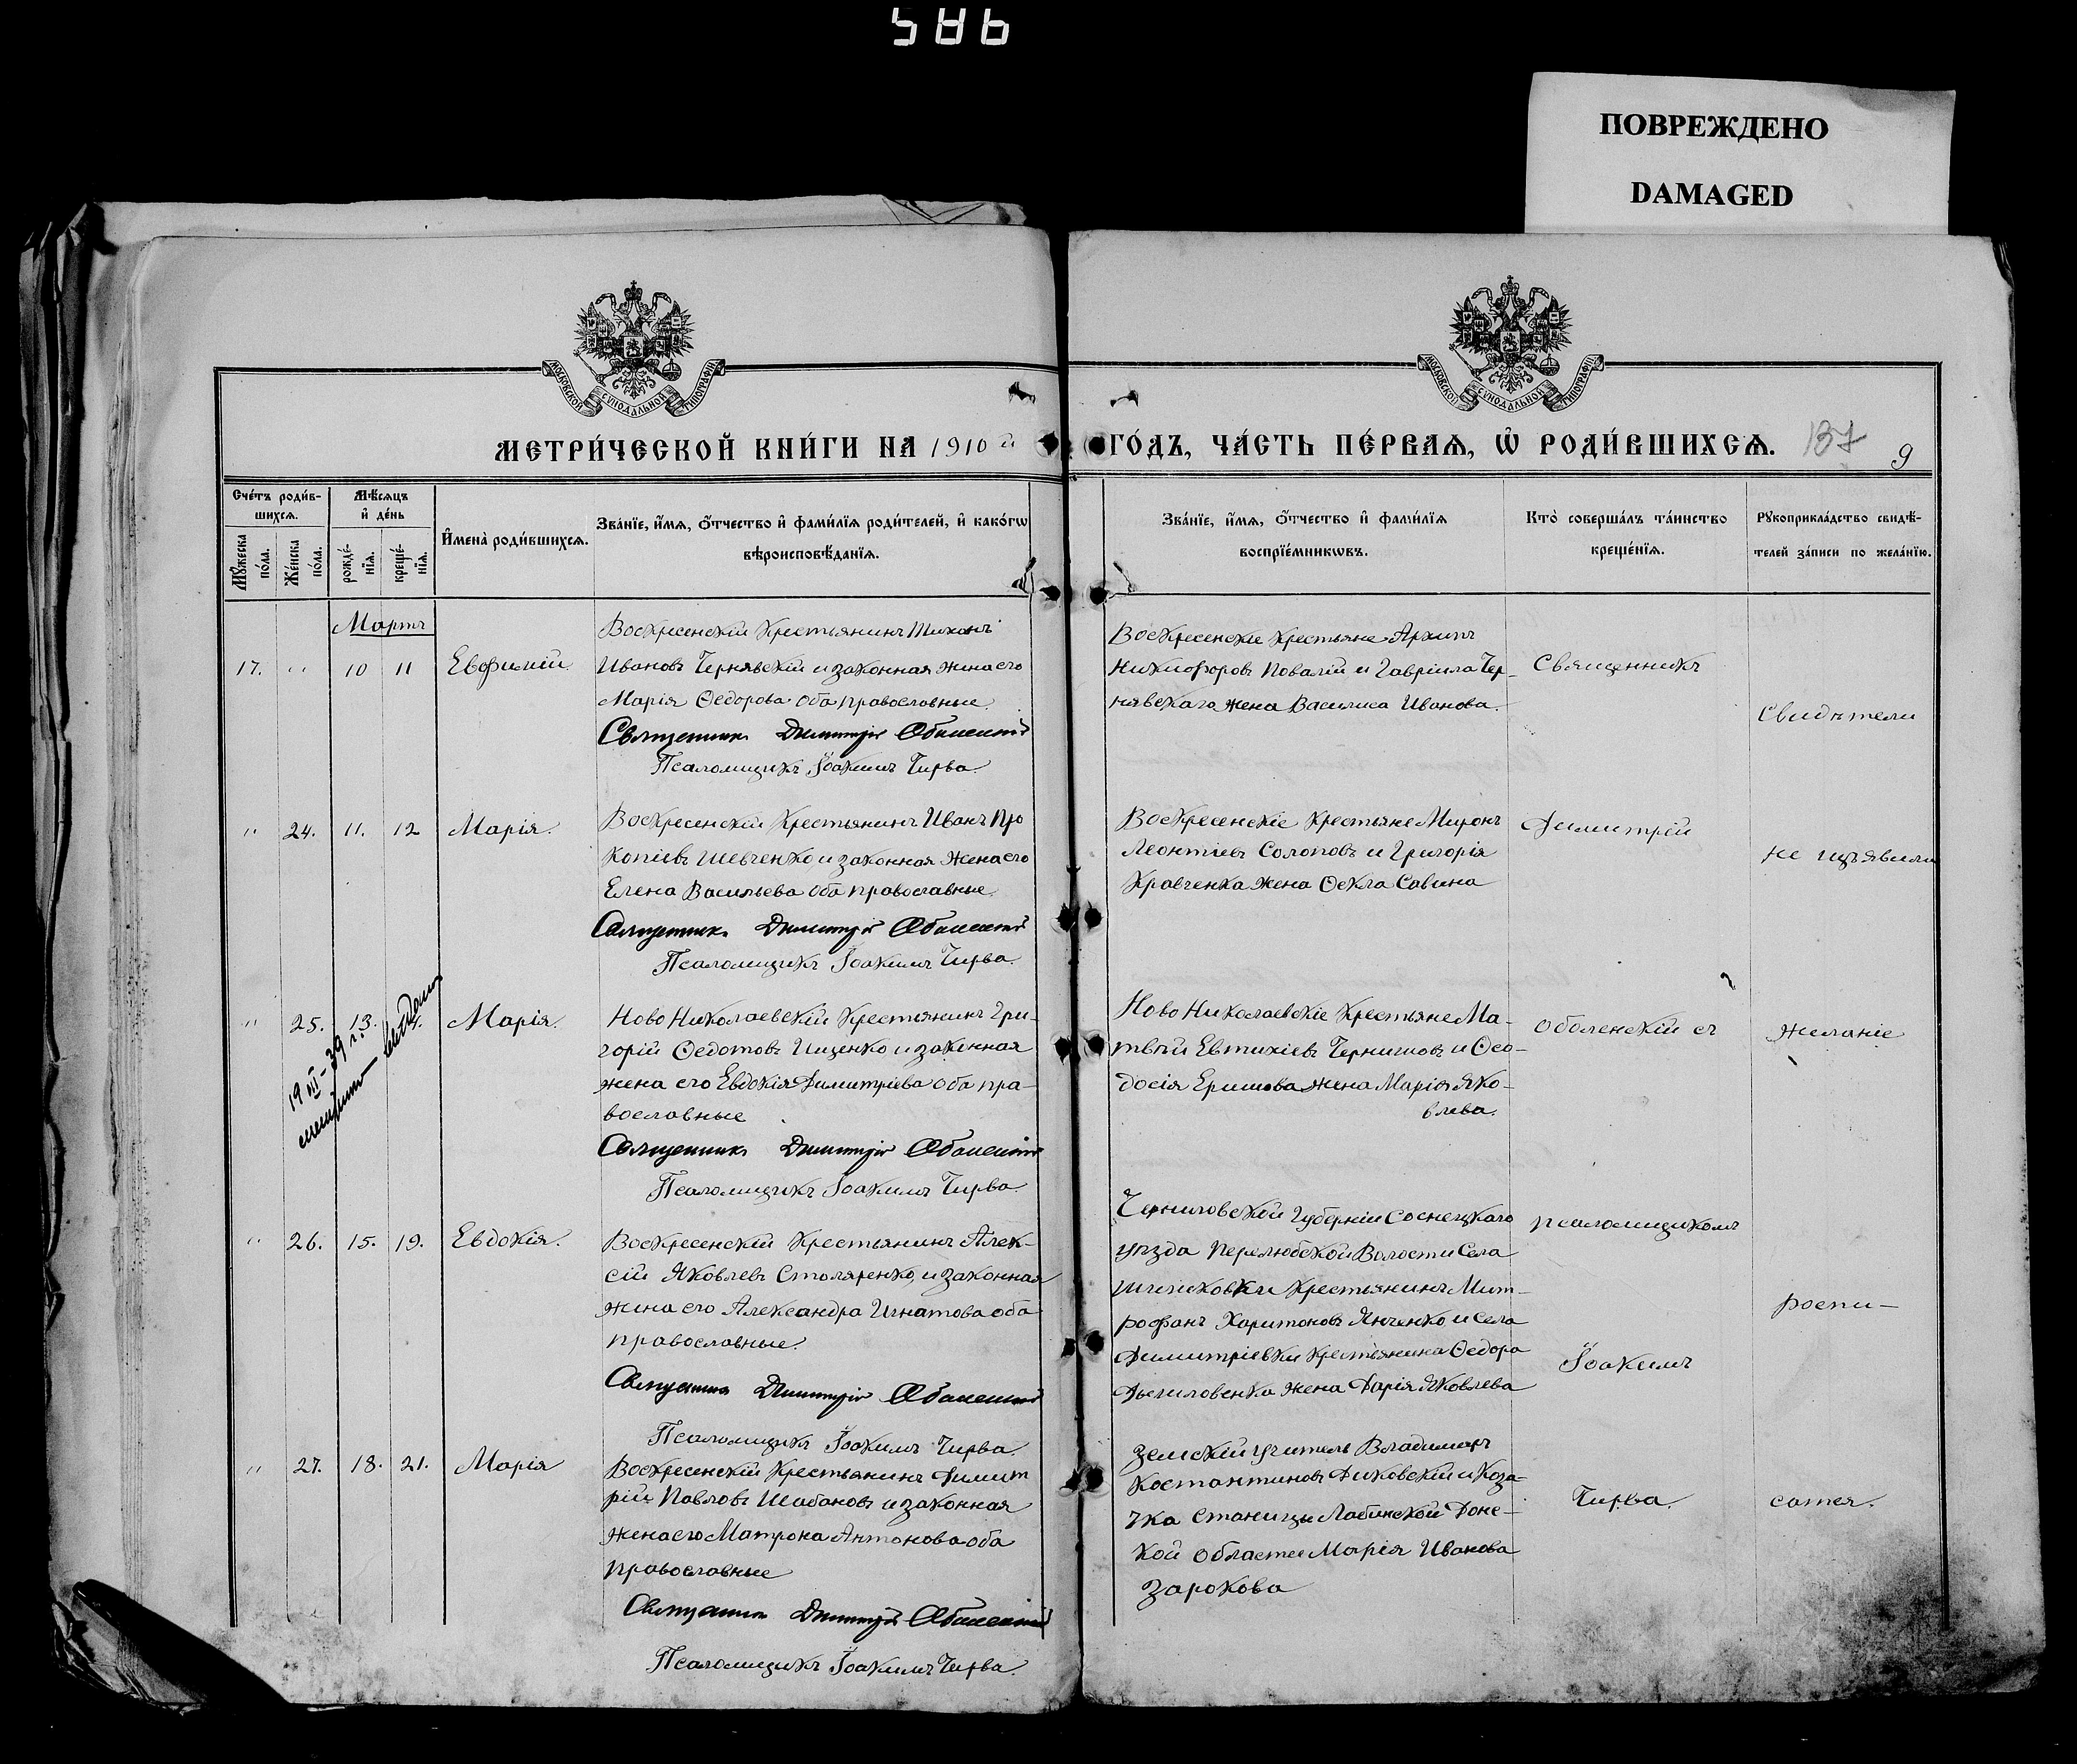 586
ПОВРЕЖДЕНО
DAMAGED
МОСКОВСКОЙ СѴНОДАЛЬНОЙ ТИПОГРАФІИ
МОСКОВСКОЙ СѴНОДАЛЬНОЙ ТИПОГРАФІИ
МЕТРИ́ЧЕСКОЙ КНИ́ГИ НА 1910 й ГО́ДЪ, ЧА́СТЬ ПЕ́РВАѦ, Ѿ РОДИ́ВШИХСѦ. 137
9
Сче́тъ роди́в-
шихсѧ.
Мꙋ́жеска по́ла.
Же́нска по́ла.
Мѣ́сѧцъ
и҆ де́нь
рожде́-
нїѧ.
креще́-
нїѧ.
И҆мена̀ роди́вшихсѧ.
Зва́нїе, и҆́мѧ, ѻ҆́тчество и҆ фами́лїѧ роди́телей, и҆ како́гѡ
вѣроисповѣ́данїѧ.
Зва́нїе, и҆́мѧ, ѻ҆́тчество и҆ фами́лїѧ
воспрїе́мникѡвъ.
Кто̀ соверша́лъ та́инство
креще́нїѧ.
Рꙋкоприкла́дство свидѣ́-
телей за́писи по жела́нїю.
Мартъ
17. " 10 11 Евфимій
Воскресенскій Крестьянинъ Тихонъ
Ивановъ Чернявскій и законная жена его
Марія Ѳедорова оба православные.
Священникъ Димитрій Оболенскій
Псаломщикъ Іоакимъ Чирва.
Воскресенскіе Крестьяне Архипъ
Никифоровъ Повалій и Гавріила Чер-
нявскаго жена Василиса Иванова.
Священникъ
Свидѣтели
" 24. 11. 12 Марія.
Воскресенскій Крестьянинъ Иванъ Про
копіевъ Шевченко и законная жена его
Елена Васильева оба православные.
Священникъ Димитрій Оболенскій
Псаломщикъ Іоакимъ Чирва.
Воскресенскіе Крестьяне Миронъ
Леонтіевъ Солоповъ и Григорія
Кравченка жена Ѳекла Савина
Димитрій
не изъявили
" 25. 13. Марія.
19 VII-39 г.
Ново Николаевскій Крестьянинъ Гри-
горій Ѳедотовъ Ищенко и законная
жена его Евдокія Димитріева оба пра-
вославные
Священникъ Димитрій Оболенскій
Псаломщикъ Іоакимъ Чирва.
Ново Николаевскіе Крестьяне Ма-
твѣй Евтихіевъ Чернышовъ и Ѳео-
досія Ершова жена Марія Яко-
влева.
Оболенскій съ
желаніе
" 26. 15. 19. Евдокія.
Воскресенскій Крестьянинъ Алек-
сій Яковлевъ Столяренко, и законная
жена его Александра Игнатова оба
православные.
Священникъ Димитрій Оболенскій
Псаломщикъ Іоакимъ Чирва.
Черниговской Губерніи Соснецкаго
уѣзда Перелюбской Волости Села
Крестьянинъ Мит-
рофанъ Харитоновъ Янченко и села
Димитріевки Крестьянина Ѳедора
жена Дарія Яковлева
псаломщикомъ
Іоакимъ
роспи-
" 27. 18. 21. Марія
Воскресенскій Крестьянинъ Димит
рій Павловъ Шабановъ и законная
жена его Матрона Антонова оба
православные
Священникъ Димитрій Оболенскій
Псаломщикъ Іоакимъ Чирва.
Земскій учитель Владимиръ
Костантиновъ Диковскій и Коза-
чка Станицы Лабинской Донс-
кой области Марія Иванова
Зарокова
Чирва.
саться.